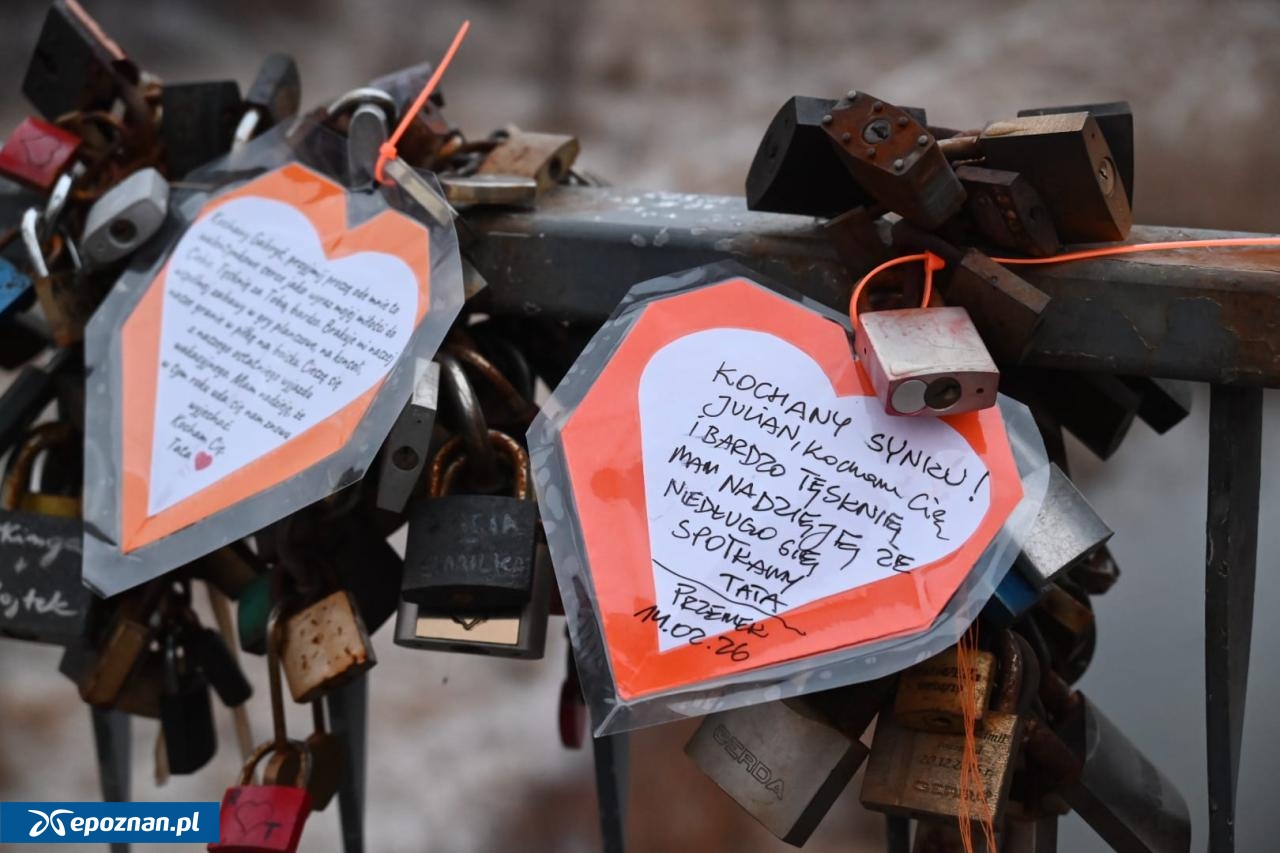 Kochany Gabryś, przyjmij proszę ode mnie to
walentynkowe serce jako wyraz mojej miłości do
Ciebie. Tęsknię za Tobą bardzo. Brakuje mi naszej
wspólnej zabawy w gry planszowe, na konsoli,
nasze granie w piłkę na boisku. Cieszę się
z naszego ostatniego wyjazdu
wakacyjnego. Mam nadzieję, że
w tym roku uda się nam znowu
wyjechać
Kocham Cię
Tata
KOCHANY SYNKU!
JULIAN, KOCHAM CIĘ,
I BARDZO TĘSKNIĘ
MAM NADZIEJĘ ŻE
NIEDŁUGO SIĘ
SPOTKAMY
TATA
PRZEMEK
14.02.26
Kinga
+
ojtek
GERDA
20.12.
GERDA
T
epoznan.pl